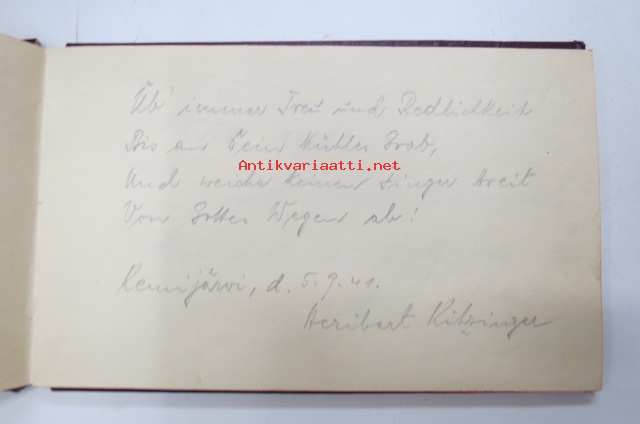 Üb' immer Treu und Redlichkeit
Bis an Dein kühles Grab,
Antikvariaatti.net
Und weiche keinen Finger breit
Von Gottes Wegen ab!
Kemijärvi, d. 5.9.41.
Heribert Kitzinger